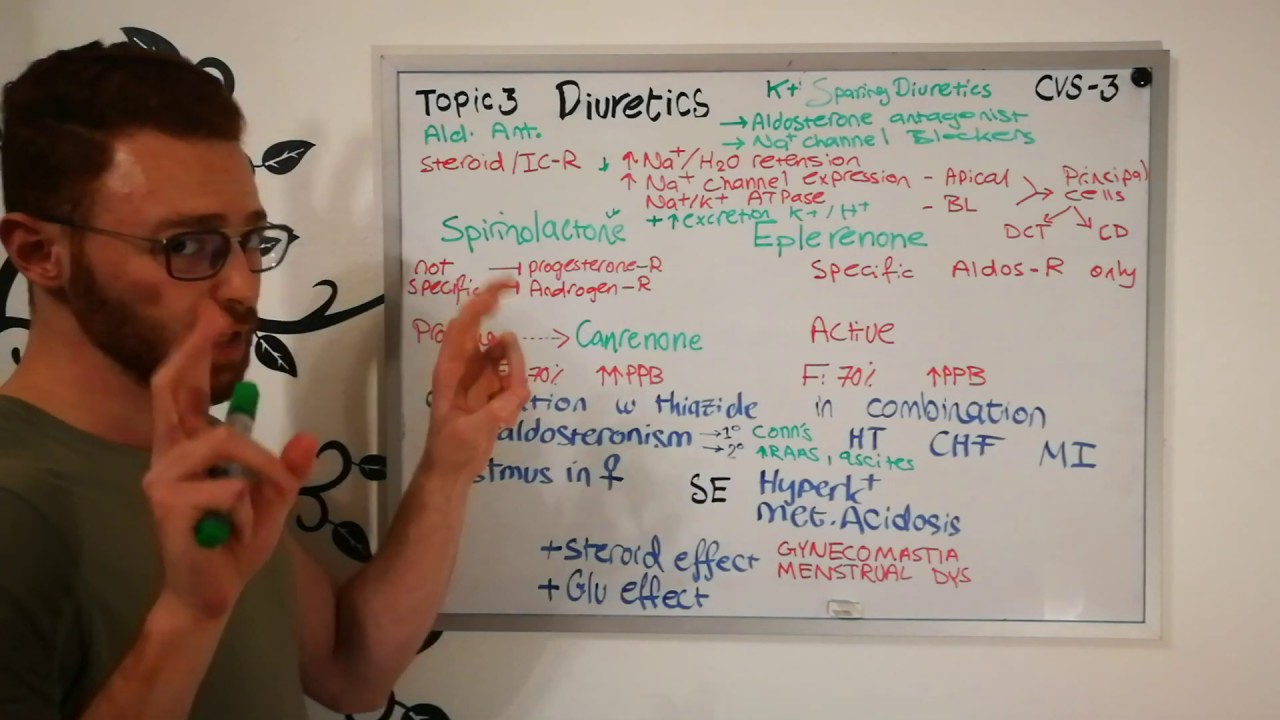 Topic 3 Diuretics K+ Sparing Diuretics CVS-3
Ald. Ant. → Aldosterone antagonist
→ Na+ channel Blockers
Steroid/IC-R ↓ ↑ Na+/H2O retension
↑ Na+ channel expression - Apical Principal cells
Na+/K+ ATPase - BL
+ ↑ excretion K+/H+ DCT CD
Spirinolactone Eplerenone
not specific ⊣ progesterone-R Specific Aldos-R only
⊣ Androgen-R
⇢ Canrenone Active
70% ↑↑PPB F: 70% ↑PPB
w thiazide in combination
aldosteronism → 1° Conn's HT CHF MI
→ 2° ↑RAAS, ascites
in ♀ SE HyperK+
Met. Acidosis
+ Steroid effect GYNECOMASTIA
MENSTRUAL DYS
+ Glu effect